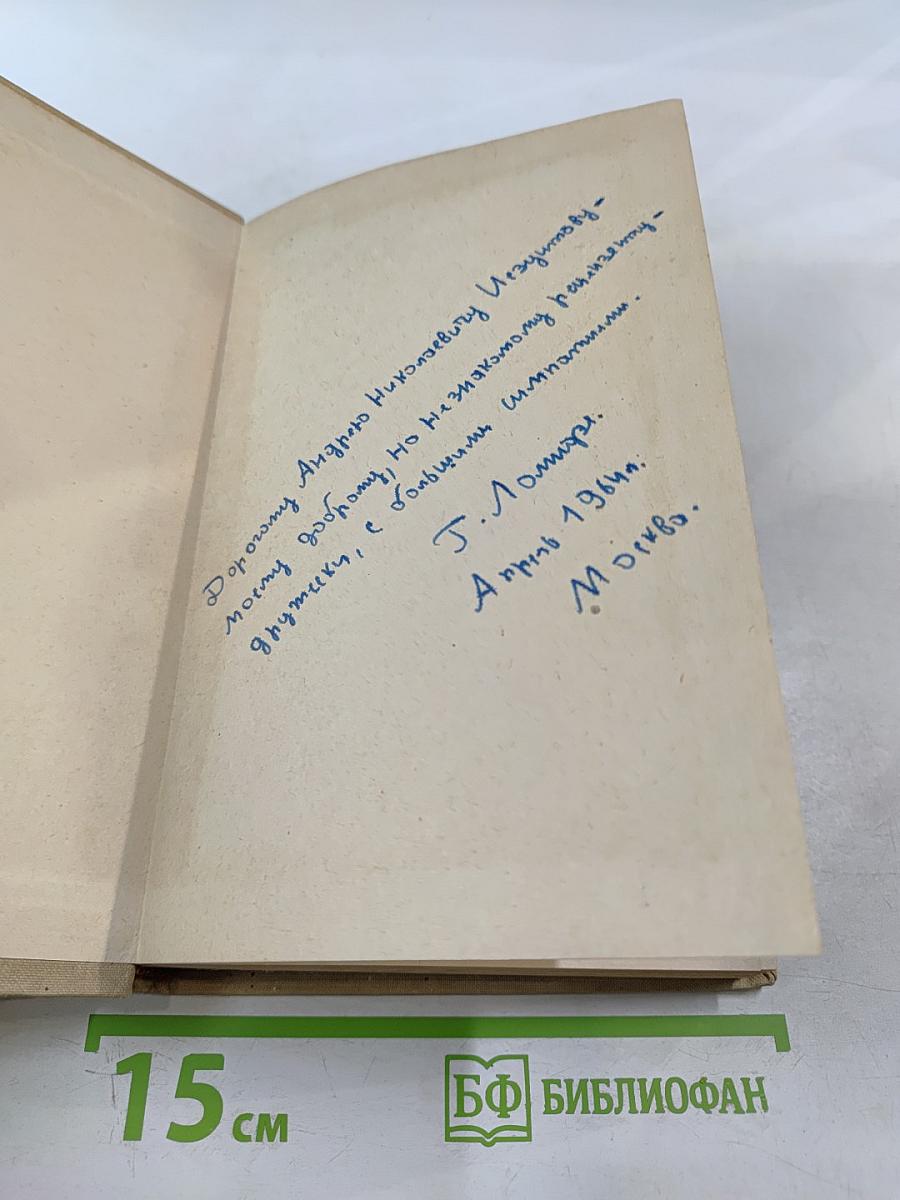 Дорогому Андрею Николаевичу Иезуитову -
моему доброму, но незнакомому
дружески, с большими симпатиями.
Г. Ломидзе.
Апрель 1964 г.
Москва.
15 см
БФ БИБЛИОФАН